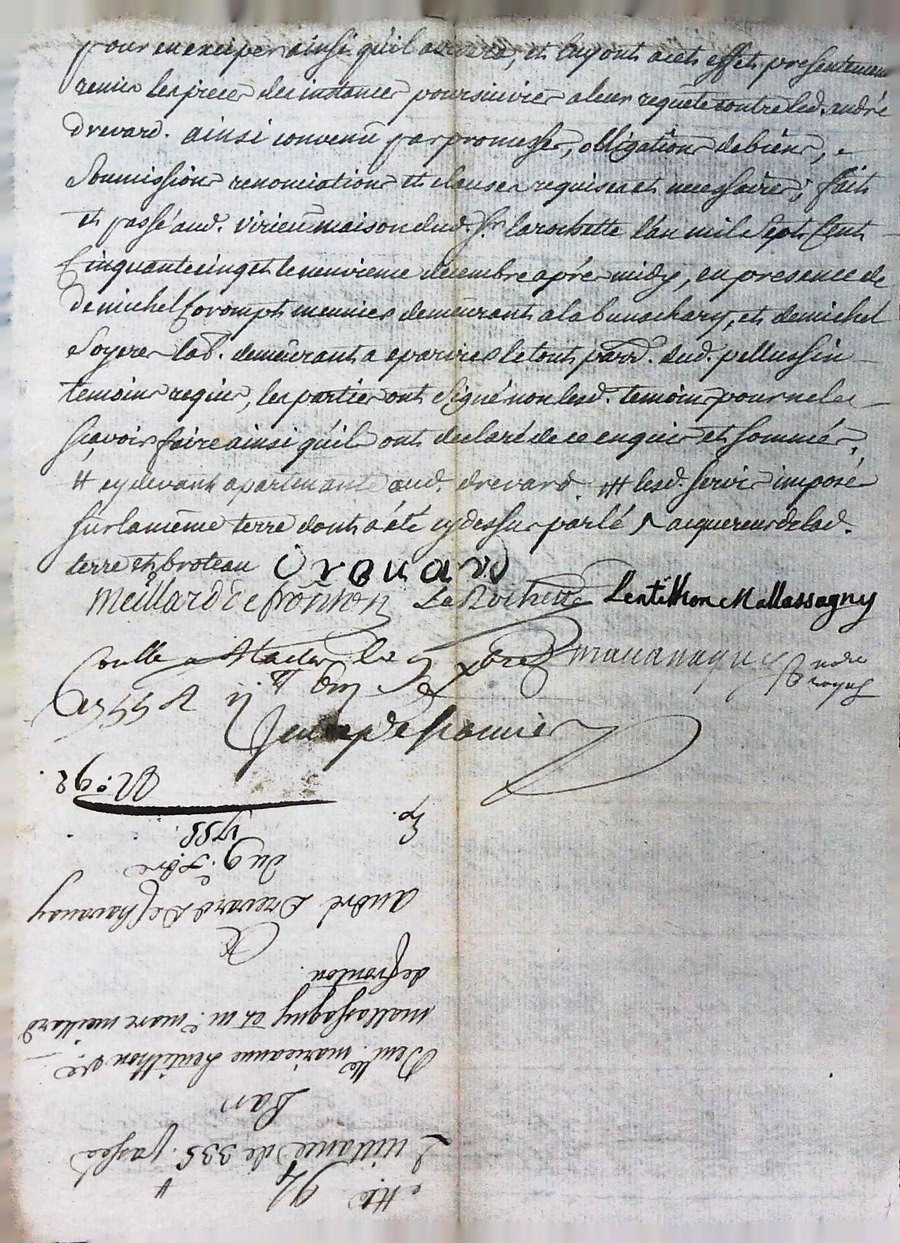 pour en exciper ainsi qu'il avisera, et luy ont a cet effet presentement
remis les pieces des instances poursuivies a leur requete contre led. andré
drevard. ainsi convenu par promesses, obligations de biens,
Soumissions renonciations et clauses requises et necessaires; fait
et passé aud. virieu maison dud. Sr. larochette l'an mil Sept Cent
Cinquante cinq et le neuvieme decembre aprés midy, en presence de
de michel Corompt meunier demeurant a la bunachary, et de michel
Soyere lab. demeurant a eparires le tout parr. dud. pellussin
temoins requis, les parties ont Signé non lesd. temoins pour ne le
sçavoir faire ainsi qu'ils ont declaré de ce enquis et sommés,
# cy devant apartenant aud. drevard. ## lesd. servis imposé
sur la méme terre dont a été cy dessus parlé acquereur de lad.
terre et broteau Drevard
Meillard Defronton LaRochette Lentillon Mallassagny
Conllé a le 9 xbre mavanaque notre royal
1755
No. 92.
Du 9e. xbre
1755.
Ep.
andré Drevard De Chavanay
a
defrontou.
mallassagny et me. marc meillard
Demlle. marieanne Lentithon ve.
Par
Quittance de 335 passée